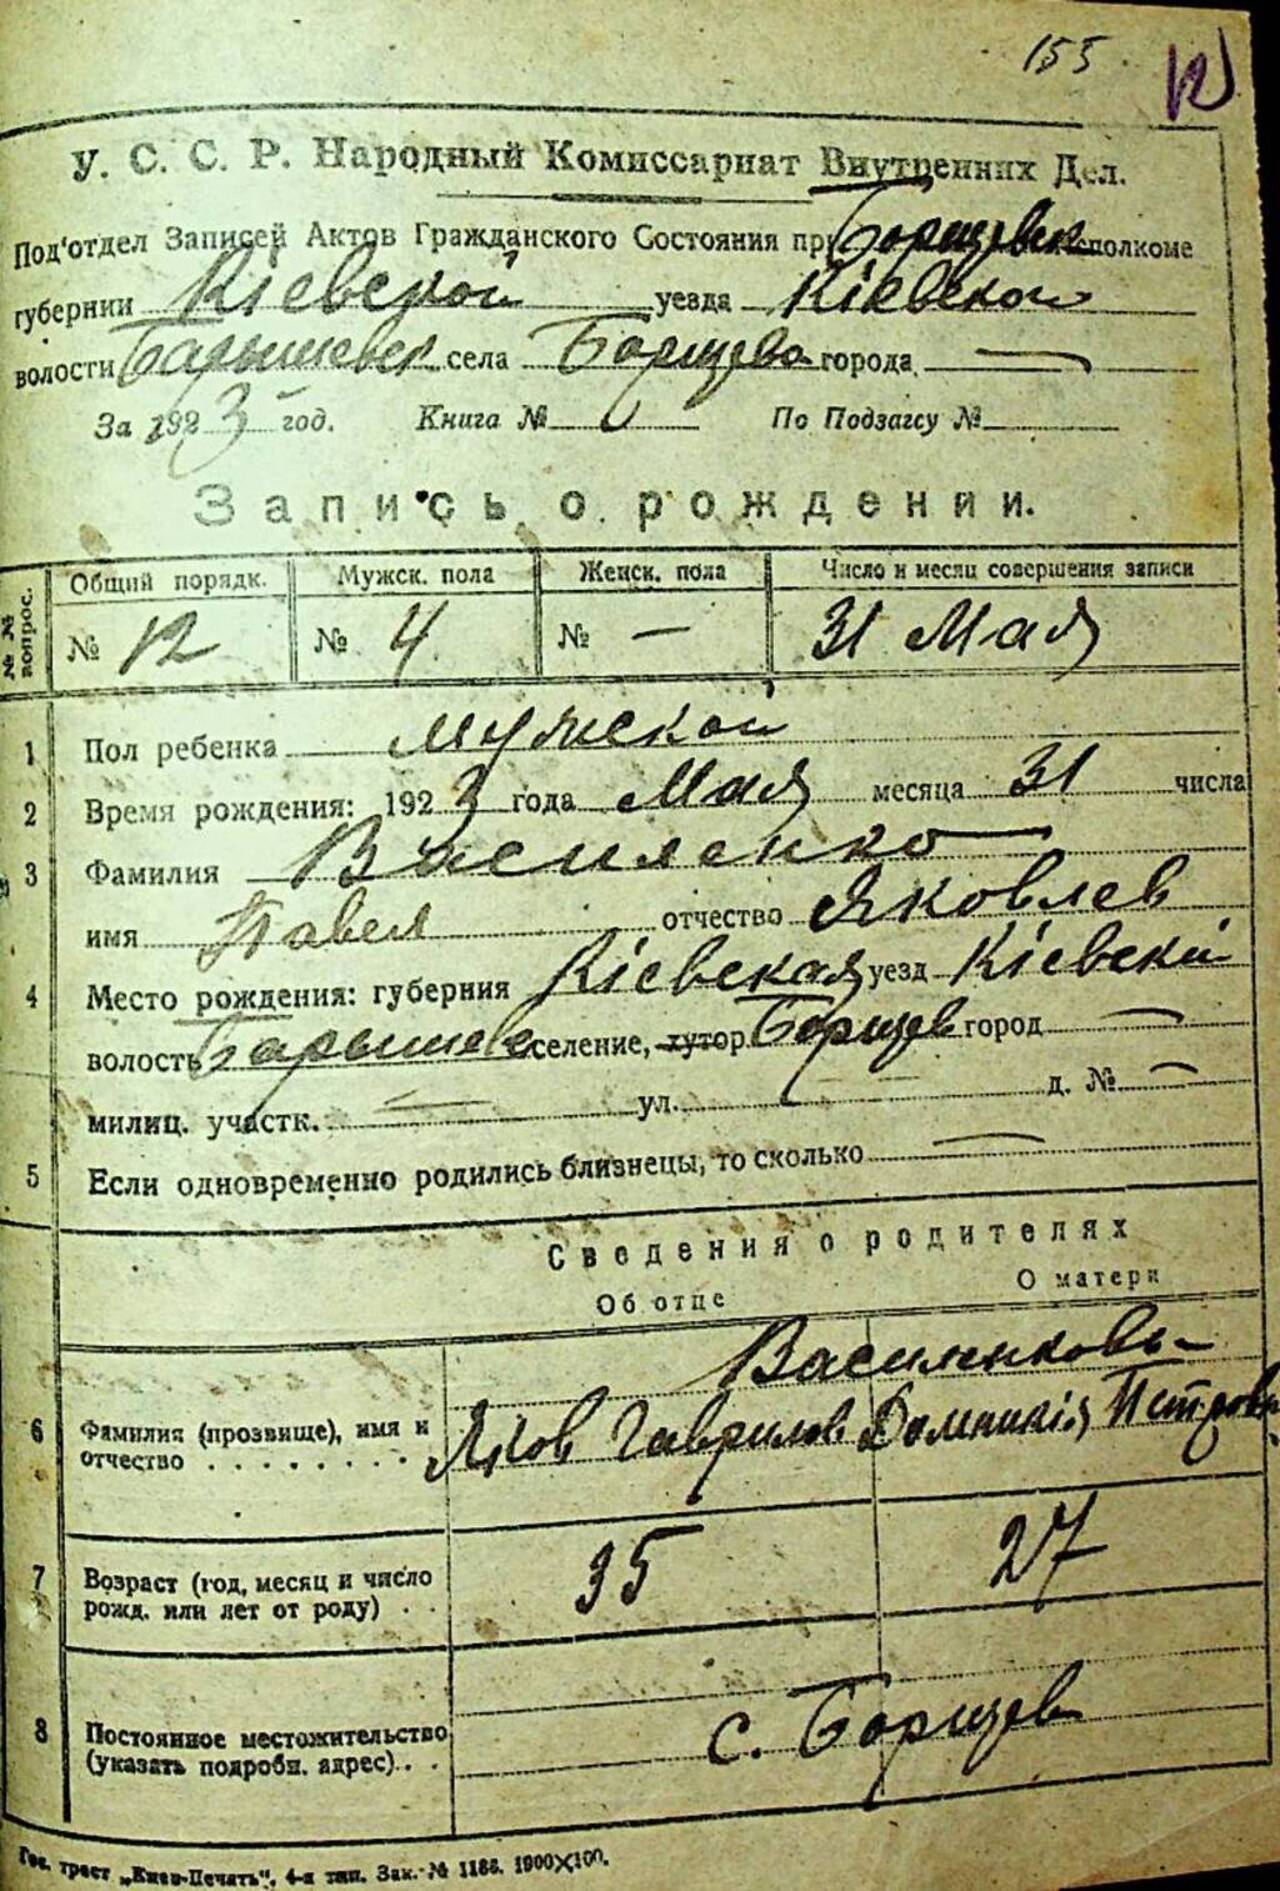 155.
12
У. С. С. Р. Народный Комиссариат Внутренних Дел.
Под'отдел Записей Актов Гражданского Состояния при Борщевск сполкоме
губернии Кіевской уезда Кіевской
волости Барышевск села Борщева города —
За 1923 год. Книга № По Подзагсу №
Запись о рождении.
№ № вопрос. Общий порядк. Мужск. пола Женск. пола Число и месяц совершения записи
№ 12 № 4 № — 31 Мая
1 Пол ребенка мужской
2 Время рождения: 1923 года Мая месяца 31 числа
3 Фамилия Василенко
имя Павел отчество Яковлев
4 Место рождения: губерния Кіевская уезд Кіевскій
волость Барышев селение, хутор Борщев город —
милиц. участк. — ул. — д. № —
5 Если одновременно родились близнецы, то сколько —
Сведения о родителях
Об отце О матери
Василенковы
6 Фамилия (прозвище), имя и отчество . . . . . . . . Яков Гаврилов Домникія Петрова
7 Возраст (год, месяц и число рожд. или лет от роду) . . 35 27
8 Постоянное местожительство (указать подробн. адрес) . . с. Борщев
Гос. трест „Киев-Печать“, 4-я тип. Зак. № 1186. 1900×100.